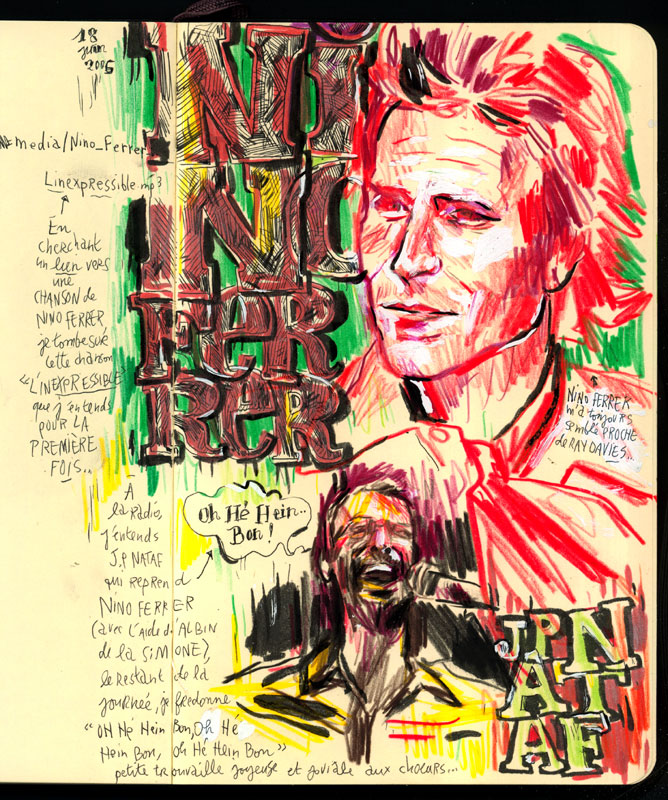 18
juin
2006
NiNO FeRReR
media/Nino_Ferrer
Linexpressible.mp3
En
cherchant
un lien vers
une
CHANSON de
NINO FERRER
je tombe sur
cette chanson
"L'INEXPRESSIBLE"
que j'entends
POUR LA
PREMIÈRE
FOIS...
NINO FERRER
m'a toujours
semblé PROCHE
de RAY DAVIES...
À
la Radio,
j'entends
J.P NATAF
qui reprend
NINO FERRER
(avec l'aide d'ALBIN
de la SIMONE),
le restant de la
journée, je fredonne
"OH Hé Hein Bon, Oh Hé
Hein Bon, oh Hé Hein Bon"
petite trouvaille joyeuse et joviale aux choeurs...
Oh Hé Hein..
Bon!
JPN
AT
AF